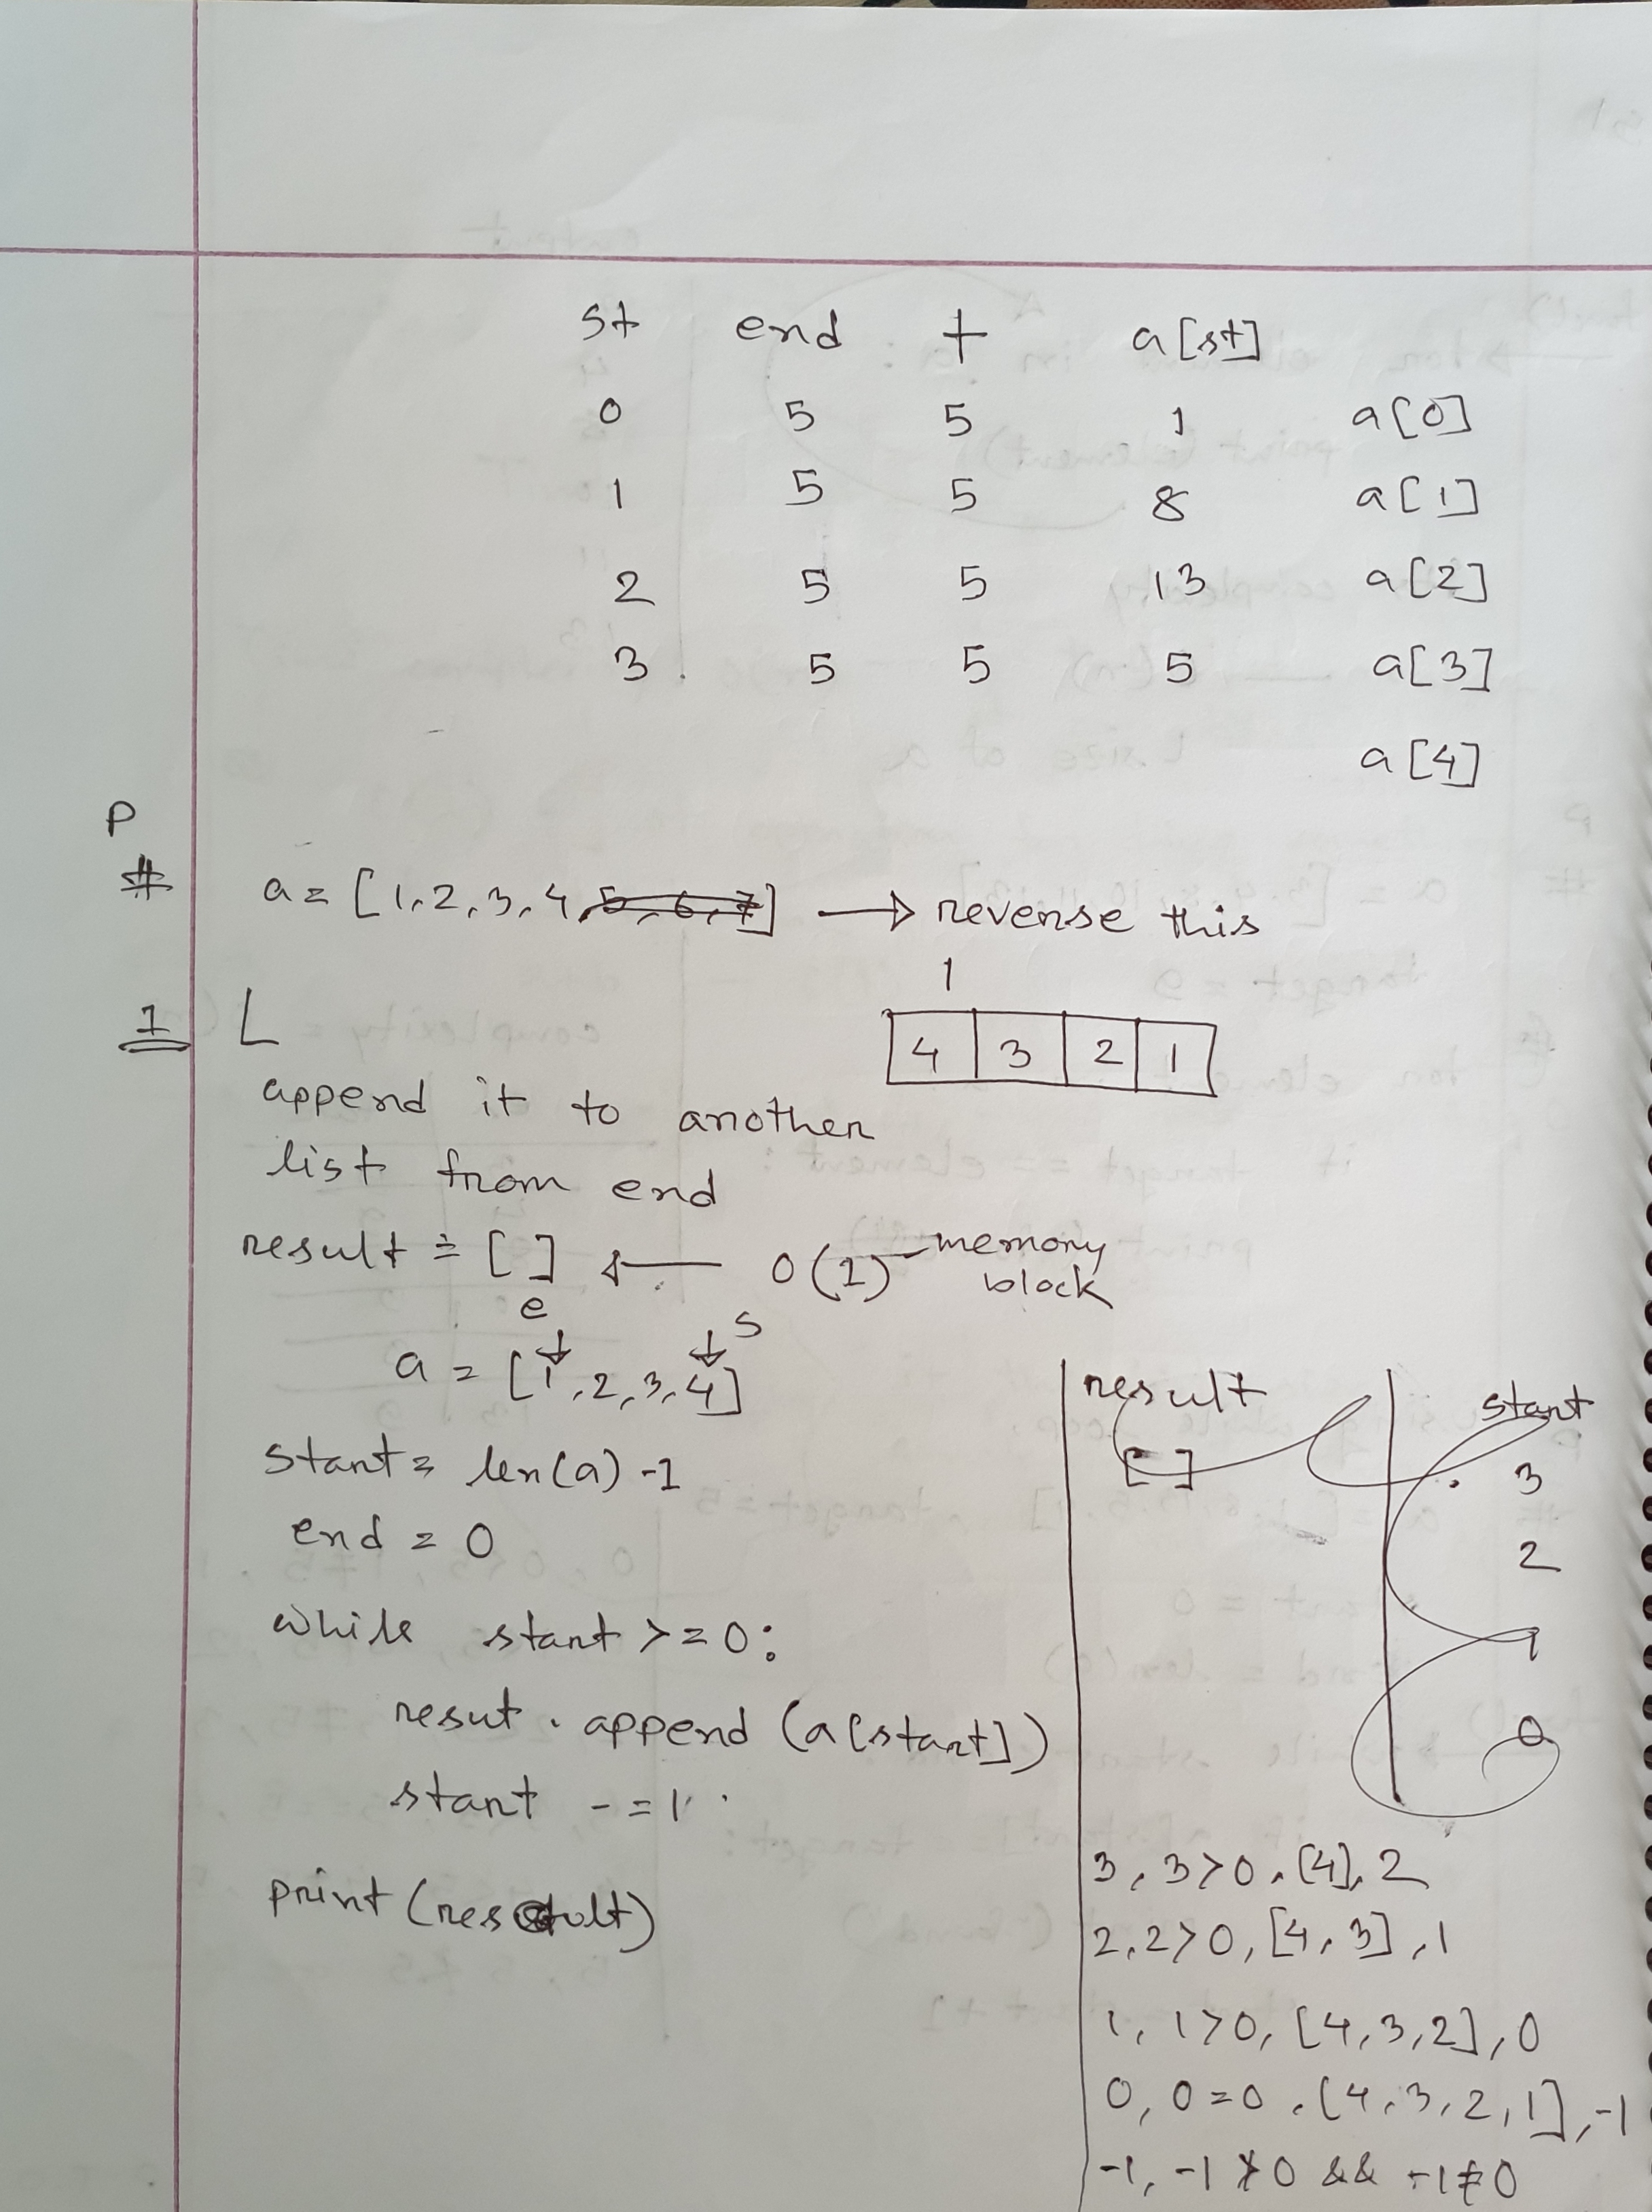 st end t a[st]
0 5 5 1 a[0]
1 5 5 8 a[1]
2 5 5 13 a[2]
3 5 5 5 a[3]
a[4]
P
# a = [1,2,3,4,5,6,7] → reverse this
1
1 L
4 3 2 1
append it to another
list from end
result = [ ] ← O(1) memory block
e s
a = [1,2,3,4]
start = len(a) -1
end = 0
while start >= 0:
resut . append (a[start])
start -= 1
print (result)
result start
[ ] 3
2
1
0
3, 3>0, [4], 2
2, 2>0, [4,3], 1
1, 1>0, [4,3,2], 0
0, 0=0, [4,3,2,1], -1
-1, -1 ≯ 0 && -1 ≠ 0